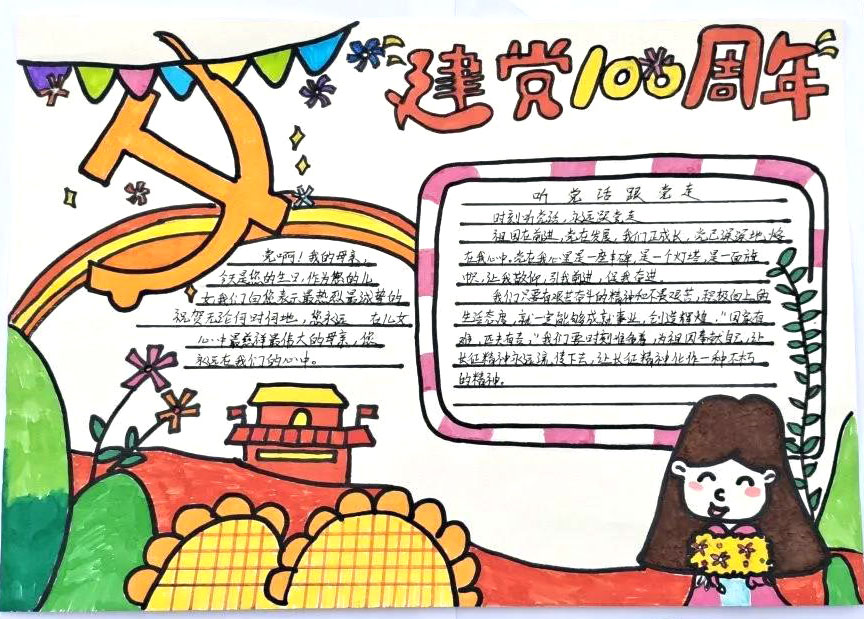 建党100周年
党啊！我的母亲，
今天是您的生日，作为您的儿
女我们向您表示最热烈最诚挚的
祝贺无论何时何地，您永远 在儿女
心中最慈祥最伟大的母亲，您
永远在我们的心中。
听党话跟党走
时刻听党话，永远跟党走
祖国在前进，党在发展，我们正成长，党已深深地烙
在我心中。党在我心里是一座丰碑，是一个灯塔，是一面旗
帜，让我敬仰，引我前进，促我奋进。
我们只要有艰苦奋斗的精神和不畏艰苦，积极向上的
生活态度，就一定能够成就事业，创造辉煌，“国家有
难，匹夫有责，”我们要时刻准备着，为祖国奉献自己，让
长征精神永远流传下去，让长征精神化作一种不朽
的精神。